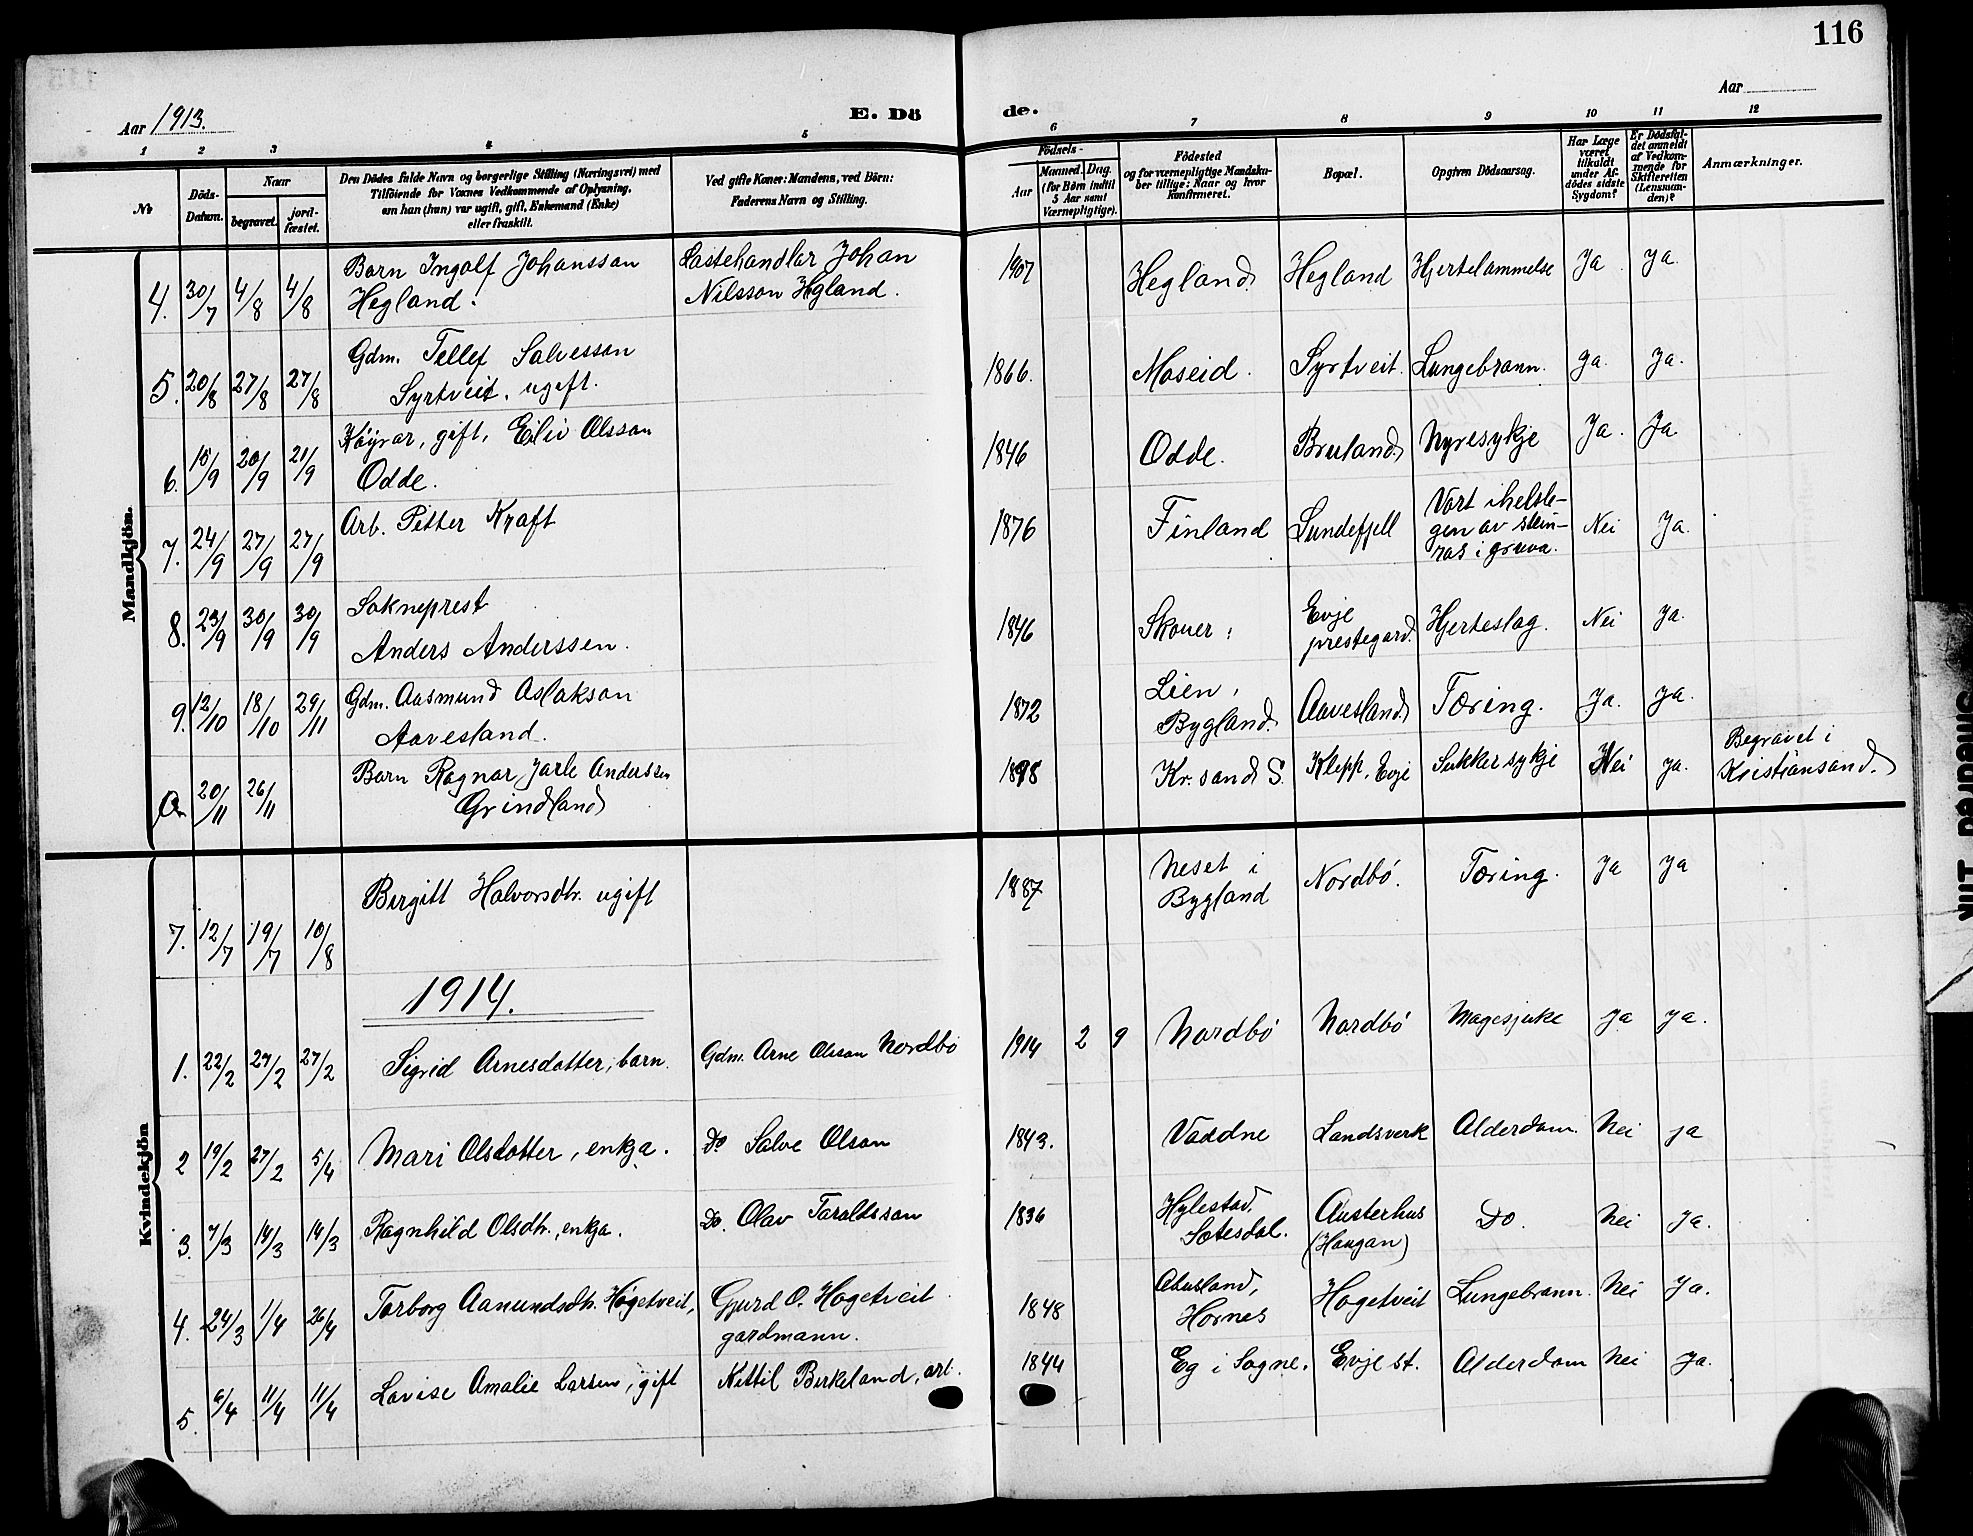 116
Aar 1913.
E. Dö
de.
Aar
1 2 3 4 5 6 7 8 9 10 11 12
No
Döds-
Datum.
Naar
begravet.
jord-
fæstet.
Den Dödes fulde Navn og borgerlige Stilling (Næringsvei) med
Tilföiende for Voxnes Vedkommende af Oplysning,
om han (hun) var ugift, gift, Enkemand (Enke)
eller fraskilt.
Ved gifte Koner: Mandens, ved Börn:
Faderens Navn og Stilling.
Födsels-
Aar
Maaned. Dag.
(for Börn indtil
5 Aar samt
Værnepligtige).
Födested
og for værnepligtige Mandsku-
ber tillige: Naar og hvor
konfirmeret.
Bopæl.
Opgiven Dödsaarsag.
Har Læge
været
tilkaldt
under Af-
dödes sidste
Sygdom?
Er Dödsfal-
det anmeldt
af Vedkom-
mende for
Skifteretten
(Lensman-
den)?
Anmærkninger.
Mandkjön.
4. 30/7 4/8 4/8 Barn Ingolf Johansson
Hegland.
Lastehandlar Johan
Nilsson Hgland.
1907 Hegland Hegland Hjertelammelse Ja Ja.
5. 20/8 27/8 27/8 Gdm. Tellef Salvesson
Syrtveit. ugift.
1866. Moseid. Syrtveit. Lungebrann. ja. Ja.
6. 15/9 20/9 21/9 Köyrar, gift, Eiliv Olsson
Odde.
1846 Odde. Bruland Nyresykje Ja. Ja
7. 24/9 27/9 27/9 Arb. Petter Kraft
1876 Finland Lundefjell Vart ihelsle-
gen av stein-
ras i gruva.
Nei Ja.
8. 23/9 30/9 30/9 Sokneprest
Anders Anderssen.
1846 Skouer Evje
prestegard.
Hjerteslag. Nei Ja.
9. 12/10 18/10 29/11 Gdm. Aasmund Aslakson
Aavesland.
1872 Lien,
Bygland.
Aavesland Tæring. Ja. Ja.
20/11 26/11 Barn Ragnar Jarle Anderssen
Grindland
1898 Kr.sand S. Klepp, Evje Sukkersykje Nei Ja. Begravet i
Kristiansand.
Kvindekjön
7. 12/7 19/7 10/8 Birgitt Halvorsdtr. ugift
1887 Neset i
Bygland
Nordbö. Tæring. Ja Ja
1914.
1. 22/2 27/2 27/2 Sigrid Arnesdotter, barn. Gdm. Arne Olsson Nordbö 1914 2 9 Nordbö Nordbö Magesjuke Ja Ja.
2 19/2 27/2 5/4 Mari Olsdotter, enkja. Do Salve Olson 1843. Vaddne Landsverk Alderdom. Nei ja
3. 7/3 14/3 14/3 Ragnhild Olsdtr., enkja. Do. Olav Taraldsson 1836 Hylestad,
Sætesdal.
Austerhus
(Haugan)
Do. Nei Ja.
4. 24/3 1/4 26/4 Torborg Aanundsdtr. Högetveit, Gjurd O. Hogetveit
gardmann.
1848 Abusland,
Hornes
Hogetveit Lungebrann. Nei Ja.
5. 6/4 11/4 11/4 Lovise Amalie Larsen, gift Kittil Birkeland, arb. 1844 Eg i Sogne. Evje st. Alderdom Nei Ja.